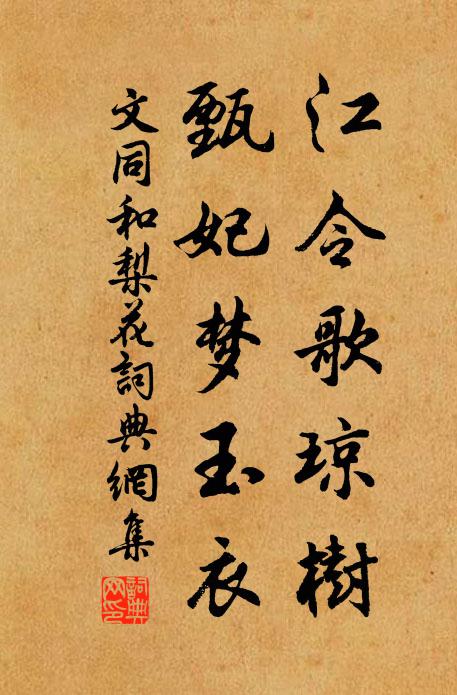 江令歌琼樹
甄妃梦玉衣
文同和梨花詞典網集
詞典网印